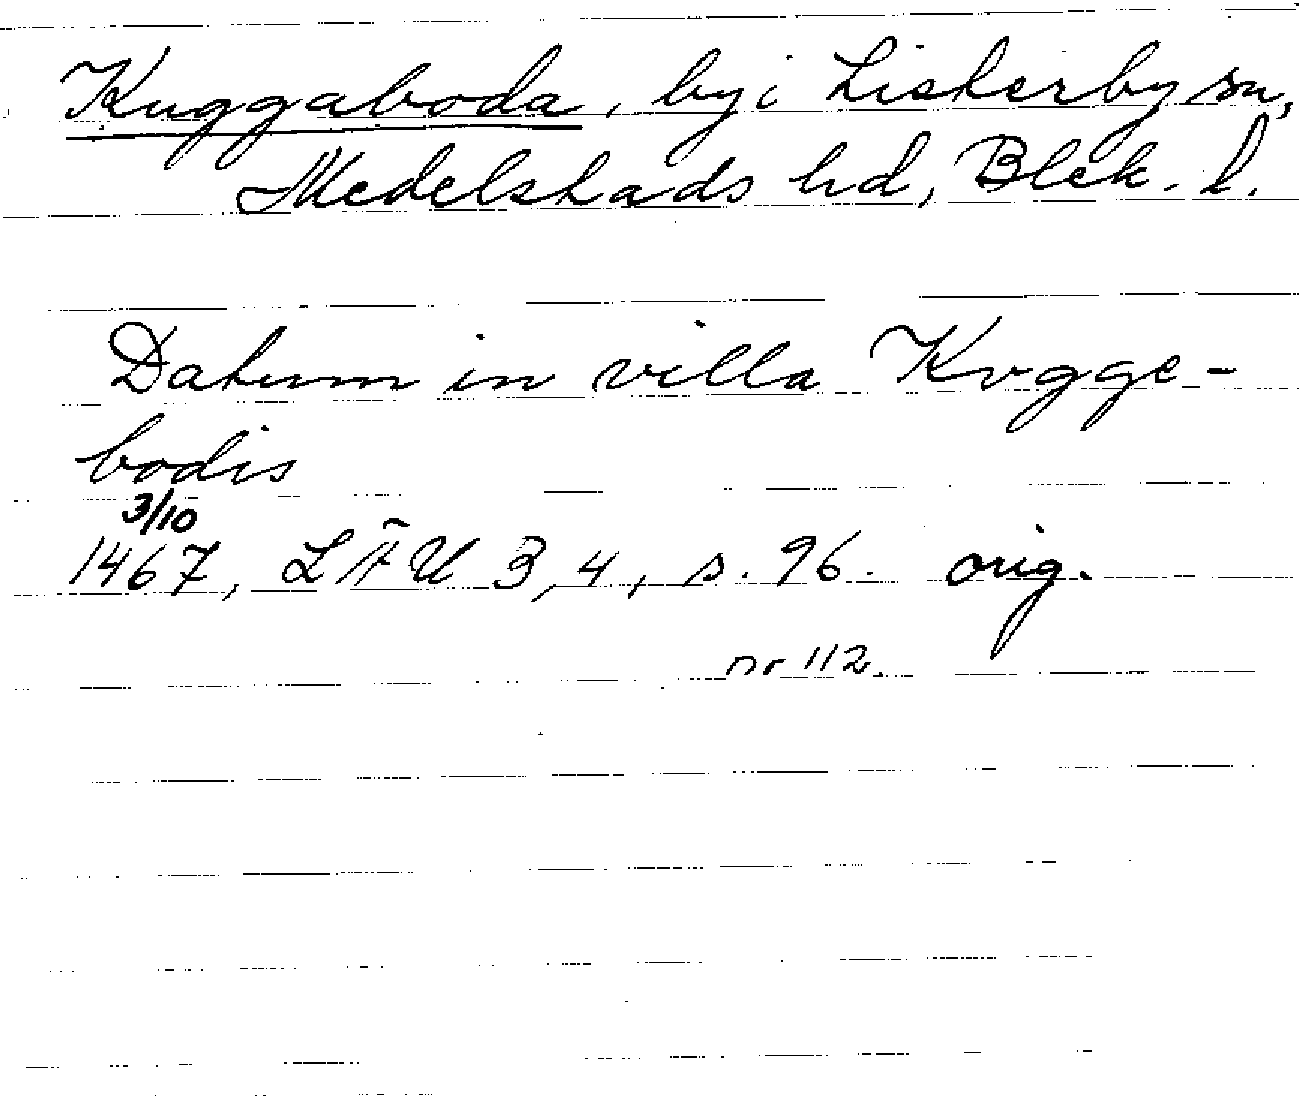 Kuggaboda, by i Listerby sn,
Medelstads hd, Blek. l.
Datum in villa Kvgge-
bodis
3/10
1467, LÄU 3, 4, s. 96. orig.
nr 112.